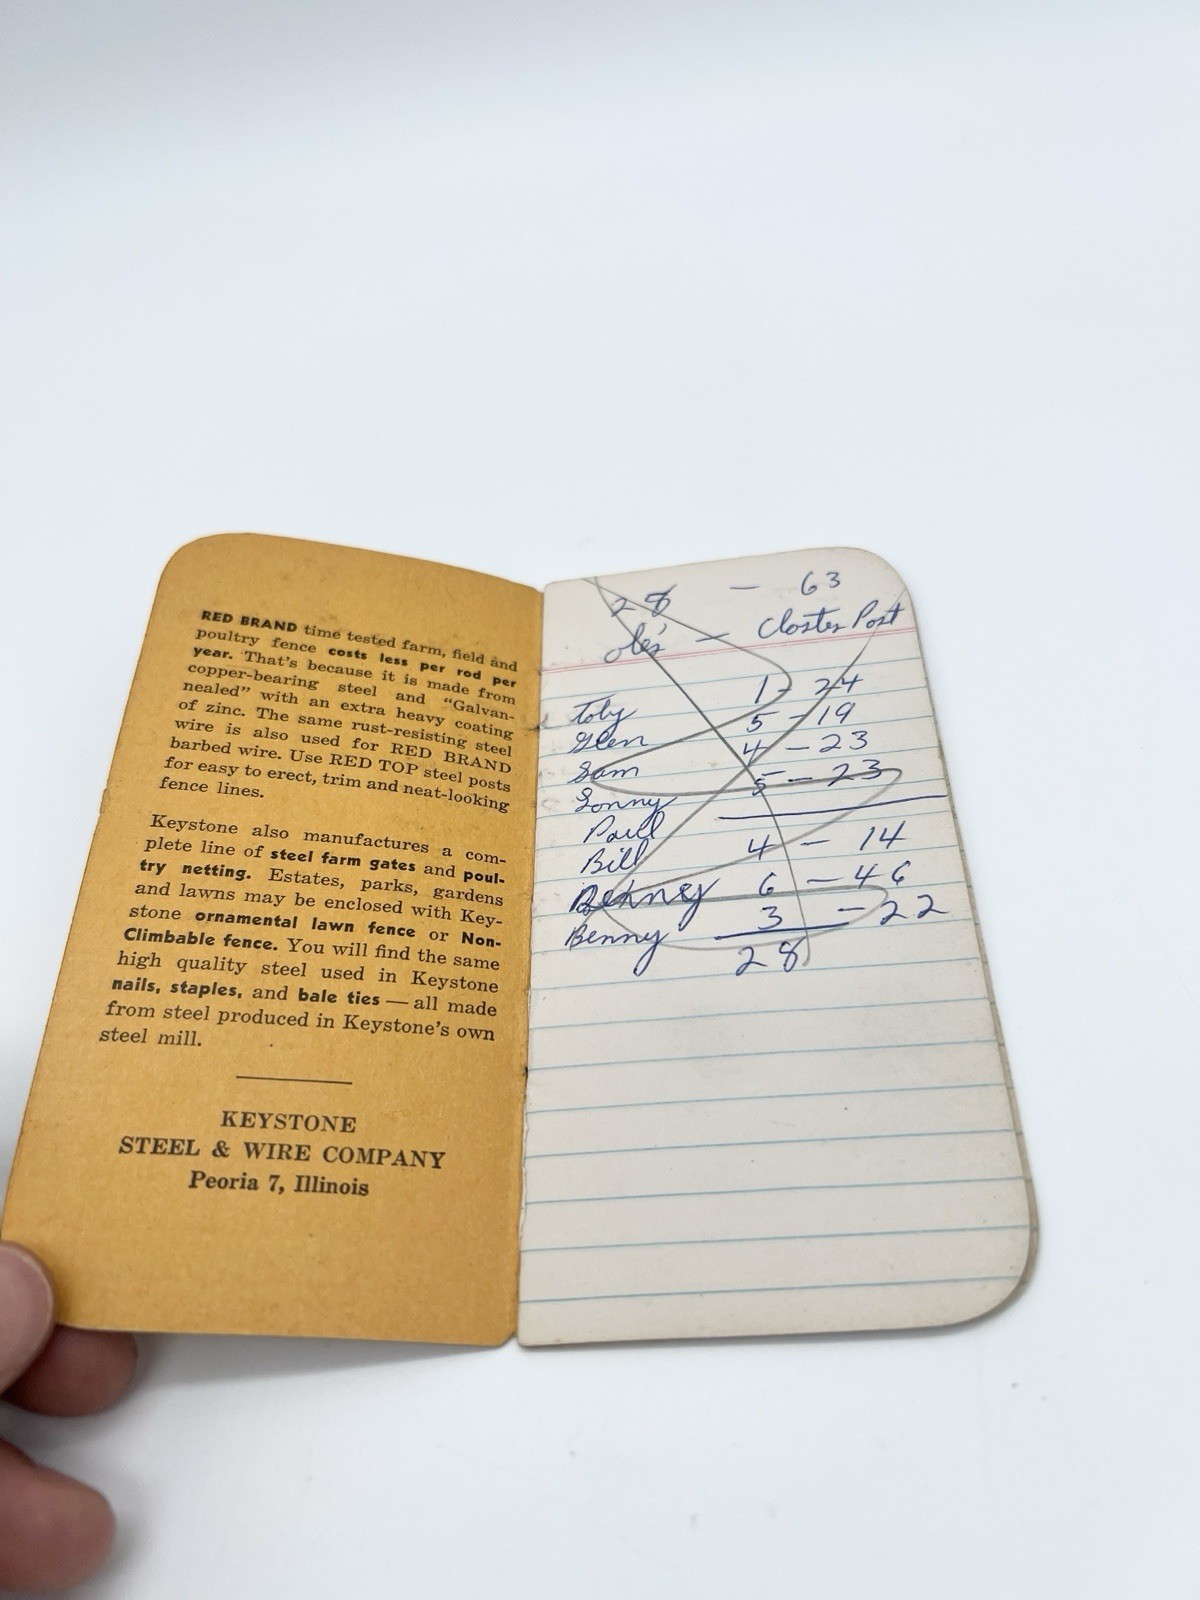 RED BRAND time tested farm, field and
poultry fence costs less per rod per
year. That's because it is made from
copper-bearing steel and "Galvan-
nealed" with an extra heavy coating
of zinc. The same rust-resisting steel
wire is also used for RED BRAND
barbed wire. Use RED TOP steel posts
for easy to erect, trim and neat-looking
fence lines.
Keystone also manufactures a com-
plete line of steel farm gates and poul-
try netting. Estates, parks, gardens
and lawns may be enclosed with Key-
stone ornamental lawn fence or Non-
Climbable fence. You will find the same
high quality steel used in Keystone
nails, staples, and bale ties — all made
from steel produced in Keystone's own
steel mill.
KEYSTONE
STEEL & WIRE COMPANY
Peoria 7, Illinois
28 — 63
— Closter Post
Toby 1 - 24
Glen 5 - 19
Sam 4 - 23
Sonny 5 - 23
Paul
Bill 4 - 14
6 - 46
Benny 3 - 22
28